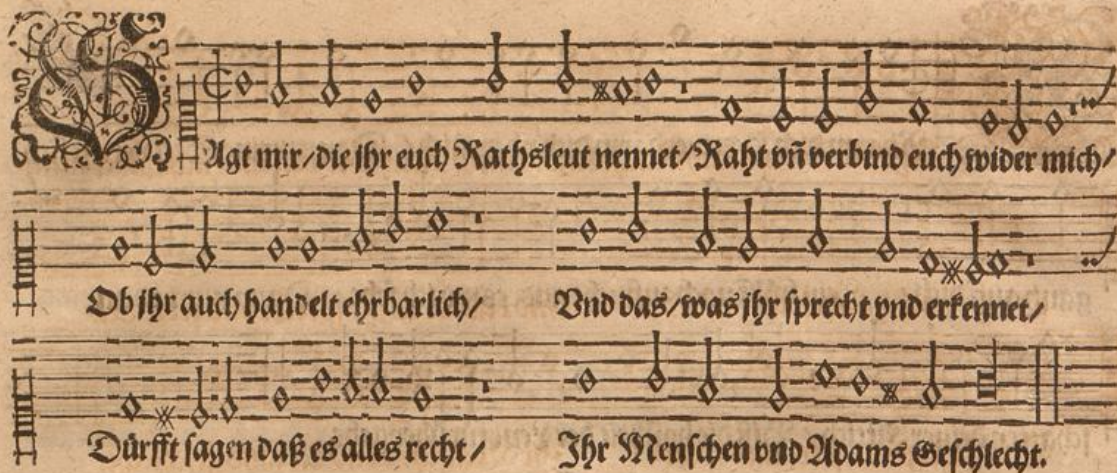 SAgt mir/die jhr euch Rathsleut nennet/Raht vñ verbind euch wider mich/
Ob jhr auch handelt ehrbarlich/ Vnd das/was jhr sprecht vnd erkennet/
Dürfft sagen daß es alles recht/ Jhr Menschen vnd Adams Geschlecht.